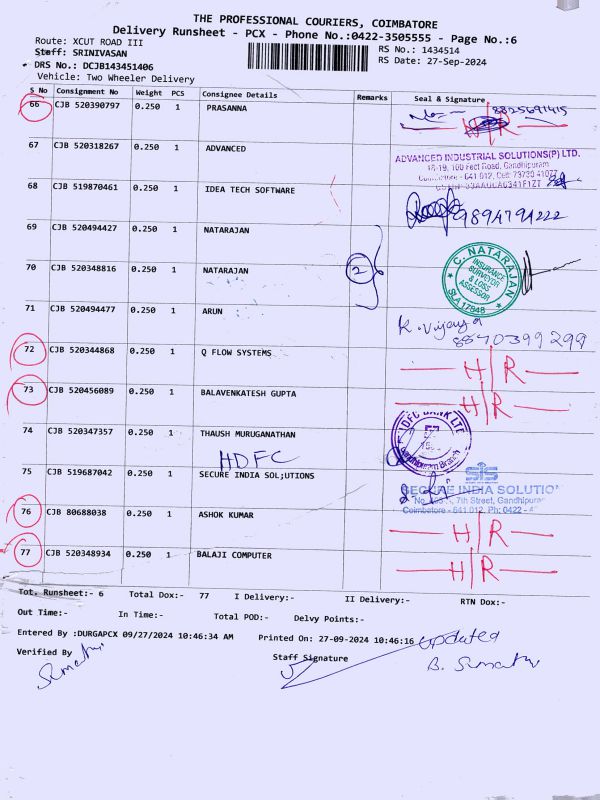 THE PROFESSIONAL COURIERS, COIMBATORE
Delivery Runsheet - PCX - Phone No.:0422-3505555 - Page No.:6
Route: XCUT ROAD III RS No.: 1434514
Staff: SRINIVASAN RS Date: 27-Sep-2024
DRS No.: DCJB143451406
Vehicle: Two Wheeler Delivery
S No Consignment No Weight PCS Consignee Details Remarks Seal & Signature
66 CJB 520390797 0.250 1 PRASANNA 8825691415
H/R
67 CJB 520318267 0.250 1 ADVANCED
ADVANCED INDUSTRIAL SOLUTIONS(P) LTD.
18-19, 100 Feet Road, Gandhipuram
Coimbatore - 641 012, Cell: 73730 41077
68 CJB 519870461 0.250 1 IDEA TECH SOFTWARE
9894794222
69 CJB 520494427 0.250 1 NATARAJAN
70 CJB 520348816 0.250 1 NATARAJAN 2
C. NATARAJAN
INSURANCE
SURVEYOR
& LOSS
ASSESSOR
SLA 17848
71 CJB 520494477 0.250 1 ARUN K. Vijaya
8870399299
72 CJB 520344868 0.250 1 Q FLOW SYSTEMS H/R
73 CJB 520456089 0.250 1 BALAVENKATESH GUPTA H/R
74 CJB 520347357 0.250 1 THAUSH MURUGANATHAN
IDFC BANK LTD
Gandhipuram Branch
HDFC
75 CJB 519687042 0.250 1 SECURE INDIA SOL;UTIONS
SIS
SECURE INDIA SOLUTIO
7th Street, Gandhipuram
Coimbatore - 641 012, Ph: 0422 - 4
76 CJB 80688038 0.250 1 ASHOK KUMAR H/R
77 CJB 520348934 0.250 1 BALAJI COMPUTER H/R
Tot. Runsheet:- 6 Total Dox:- 77 I Delivery:- II Delivery:- RTN Dox:-
Out Time:- In Time:- Total POD:- Delvy Points:-
Entered By :DURGAPCX 09/27/2024 10:46:34 AM Printed On: 27-09-2024 10:46:16 updated
Verified By Staff Signature B. Sumathi
Sumathi